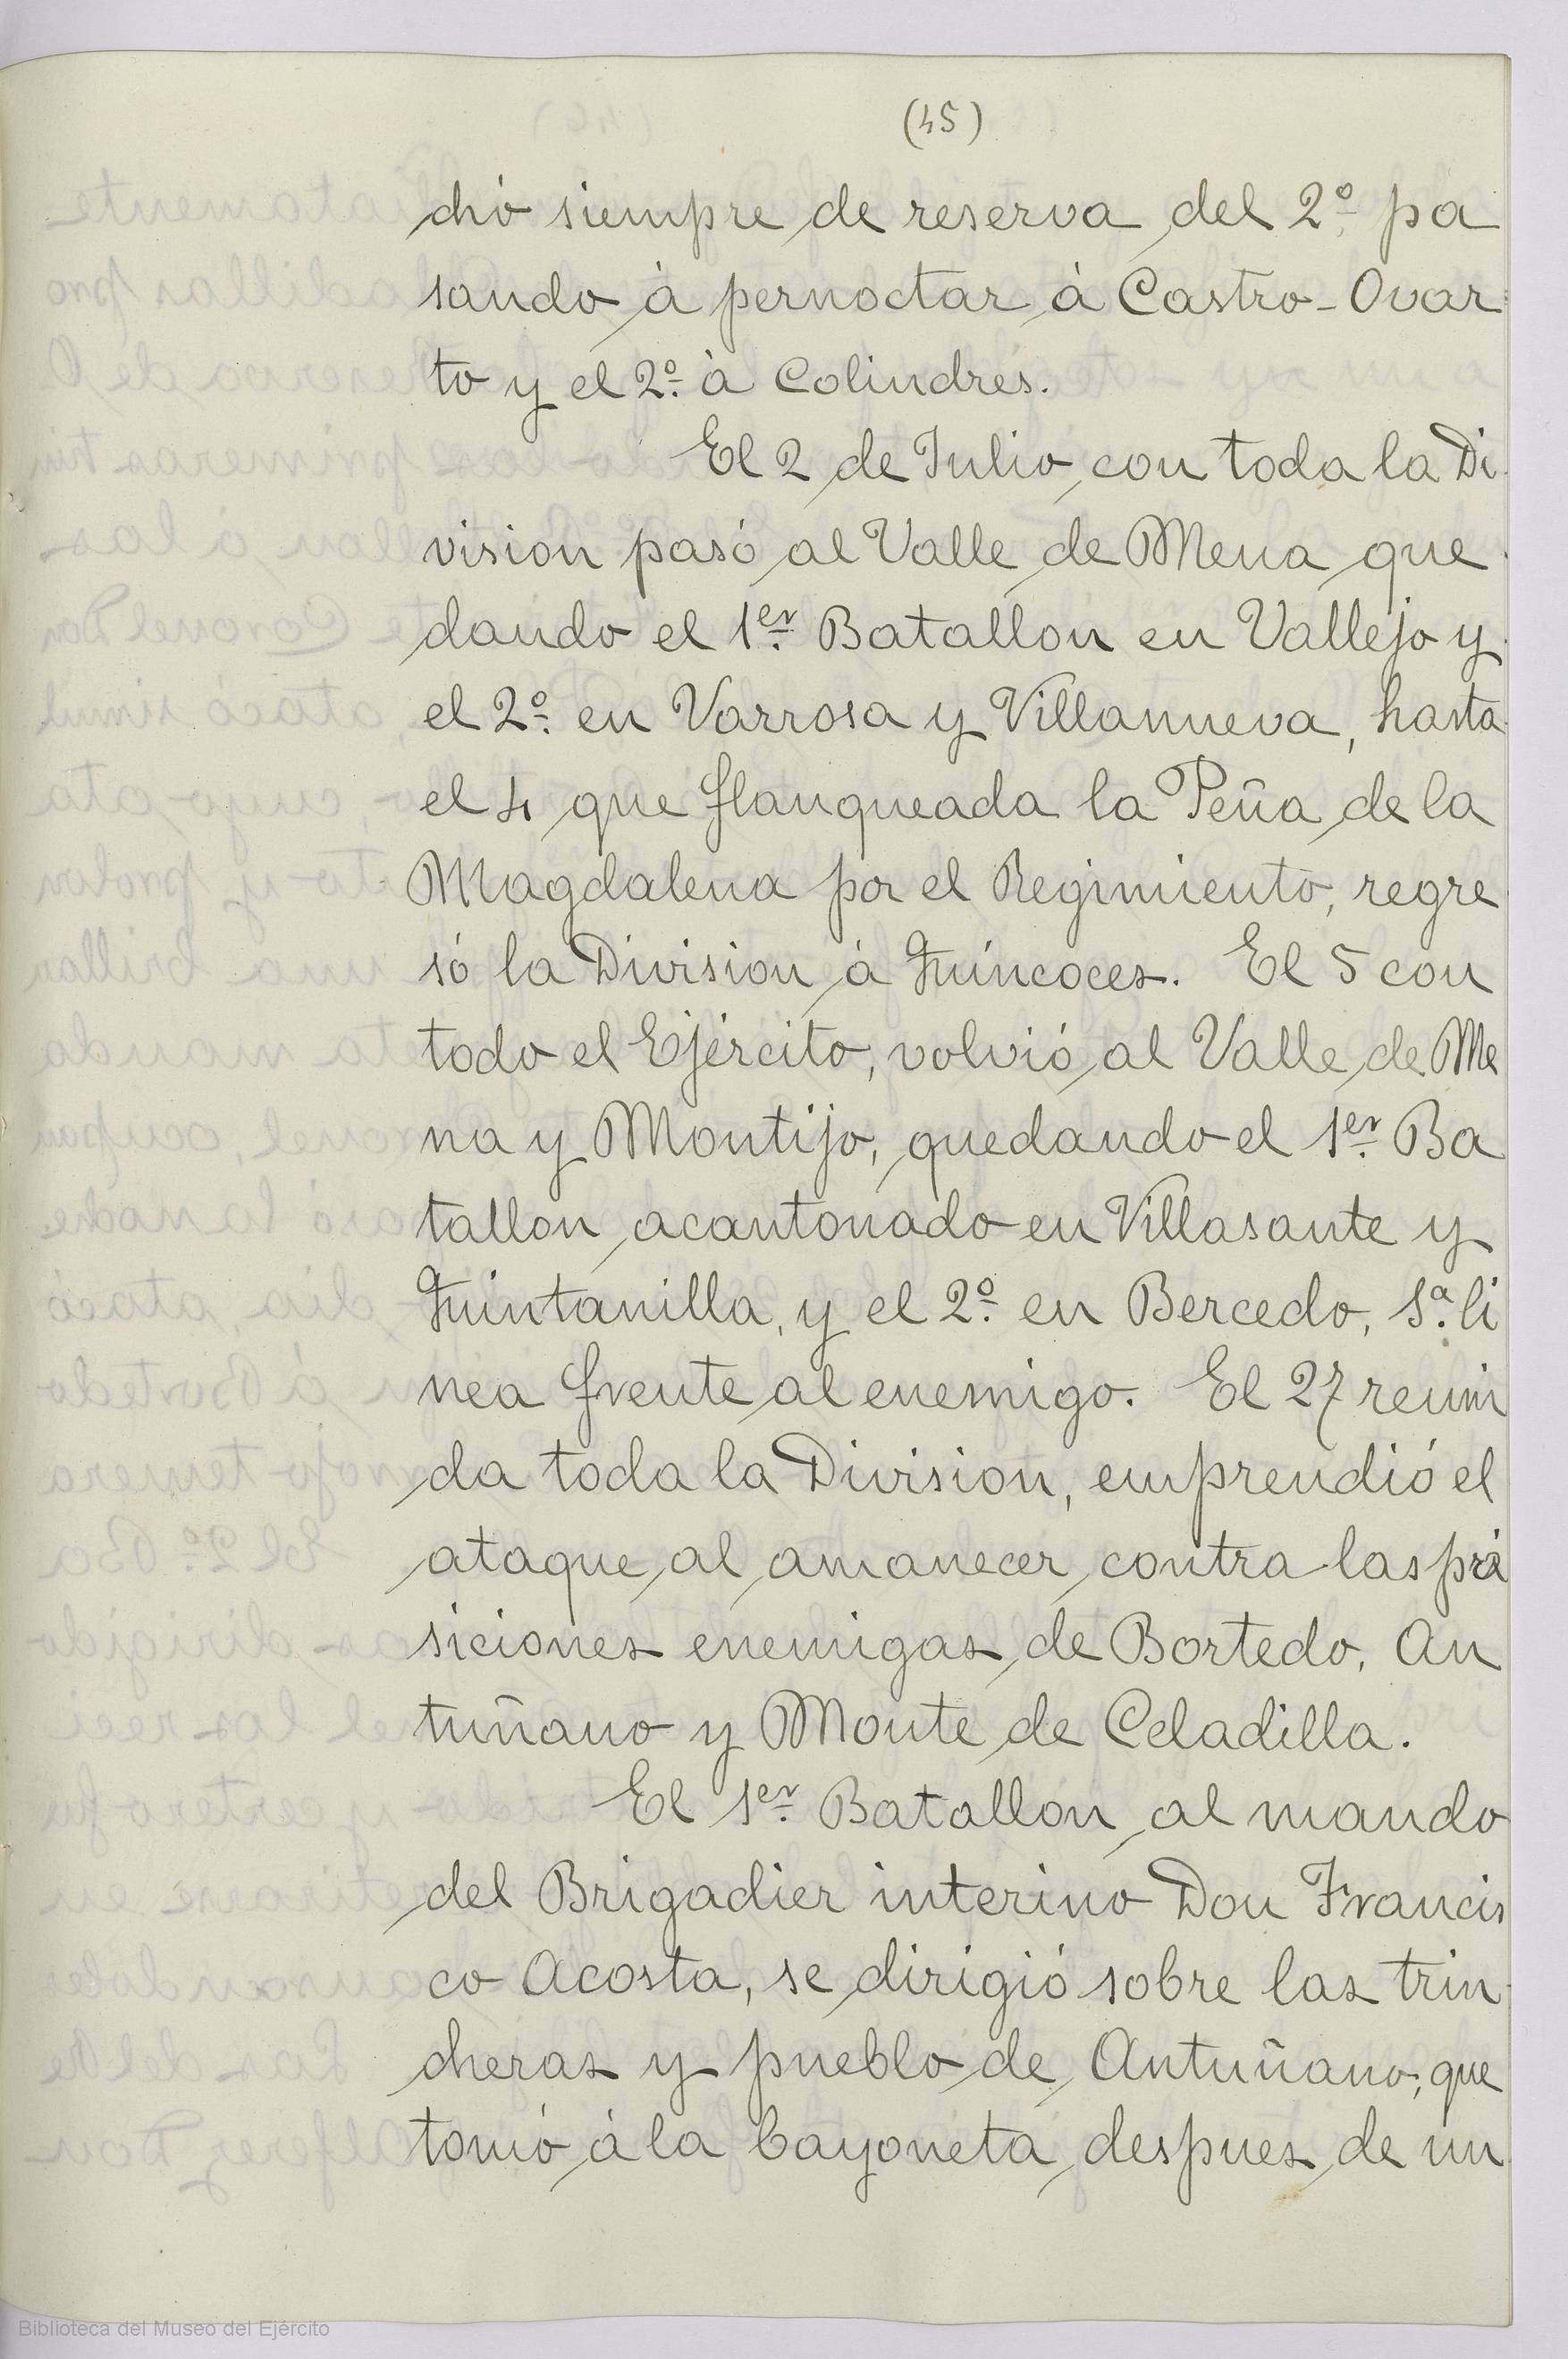 (45)
chó siempre de reserva del 2º pa
sando à pernoctar à Castro-Ovar
to y el 2º à Colindres.
El 2 de Julio, con toda la Di
vision pasó al Valle de Mena que
dando el 1er Batallon en Vallejo y
el 2º en Varrosa y Villanueva, hasta
el 4 que flanqueada la Peña de la
Magdalena por el Regimiento, regre
só la Division à Quincoces. El 5 con
todo el Ejército, volvió al Valle de Me
na y Montijo, quedando el 1er Ba
tallon acantonado en Villasante y
Quintanilla, y el 2º en Bercedo, 1ª li
nea frente al enemigo. El 27 reuni
da toda la Division, emprendió el
ataque al amanecer contra las
siciones enemigas de Bortedo, An
tuñano y Monte de Celadilla.
El 1er Batallon al mando
del Brigadier interino Don Francis
co Acosta, se dirigió sobre las trin
cheras y pueblo de Antuñano, que
tomó à la bayoneta despues de un
Biblioteca del Museo del Ejército